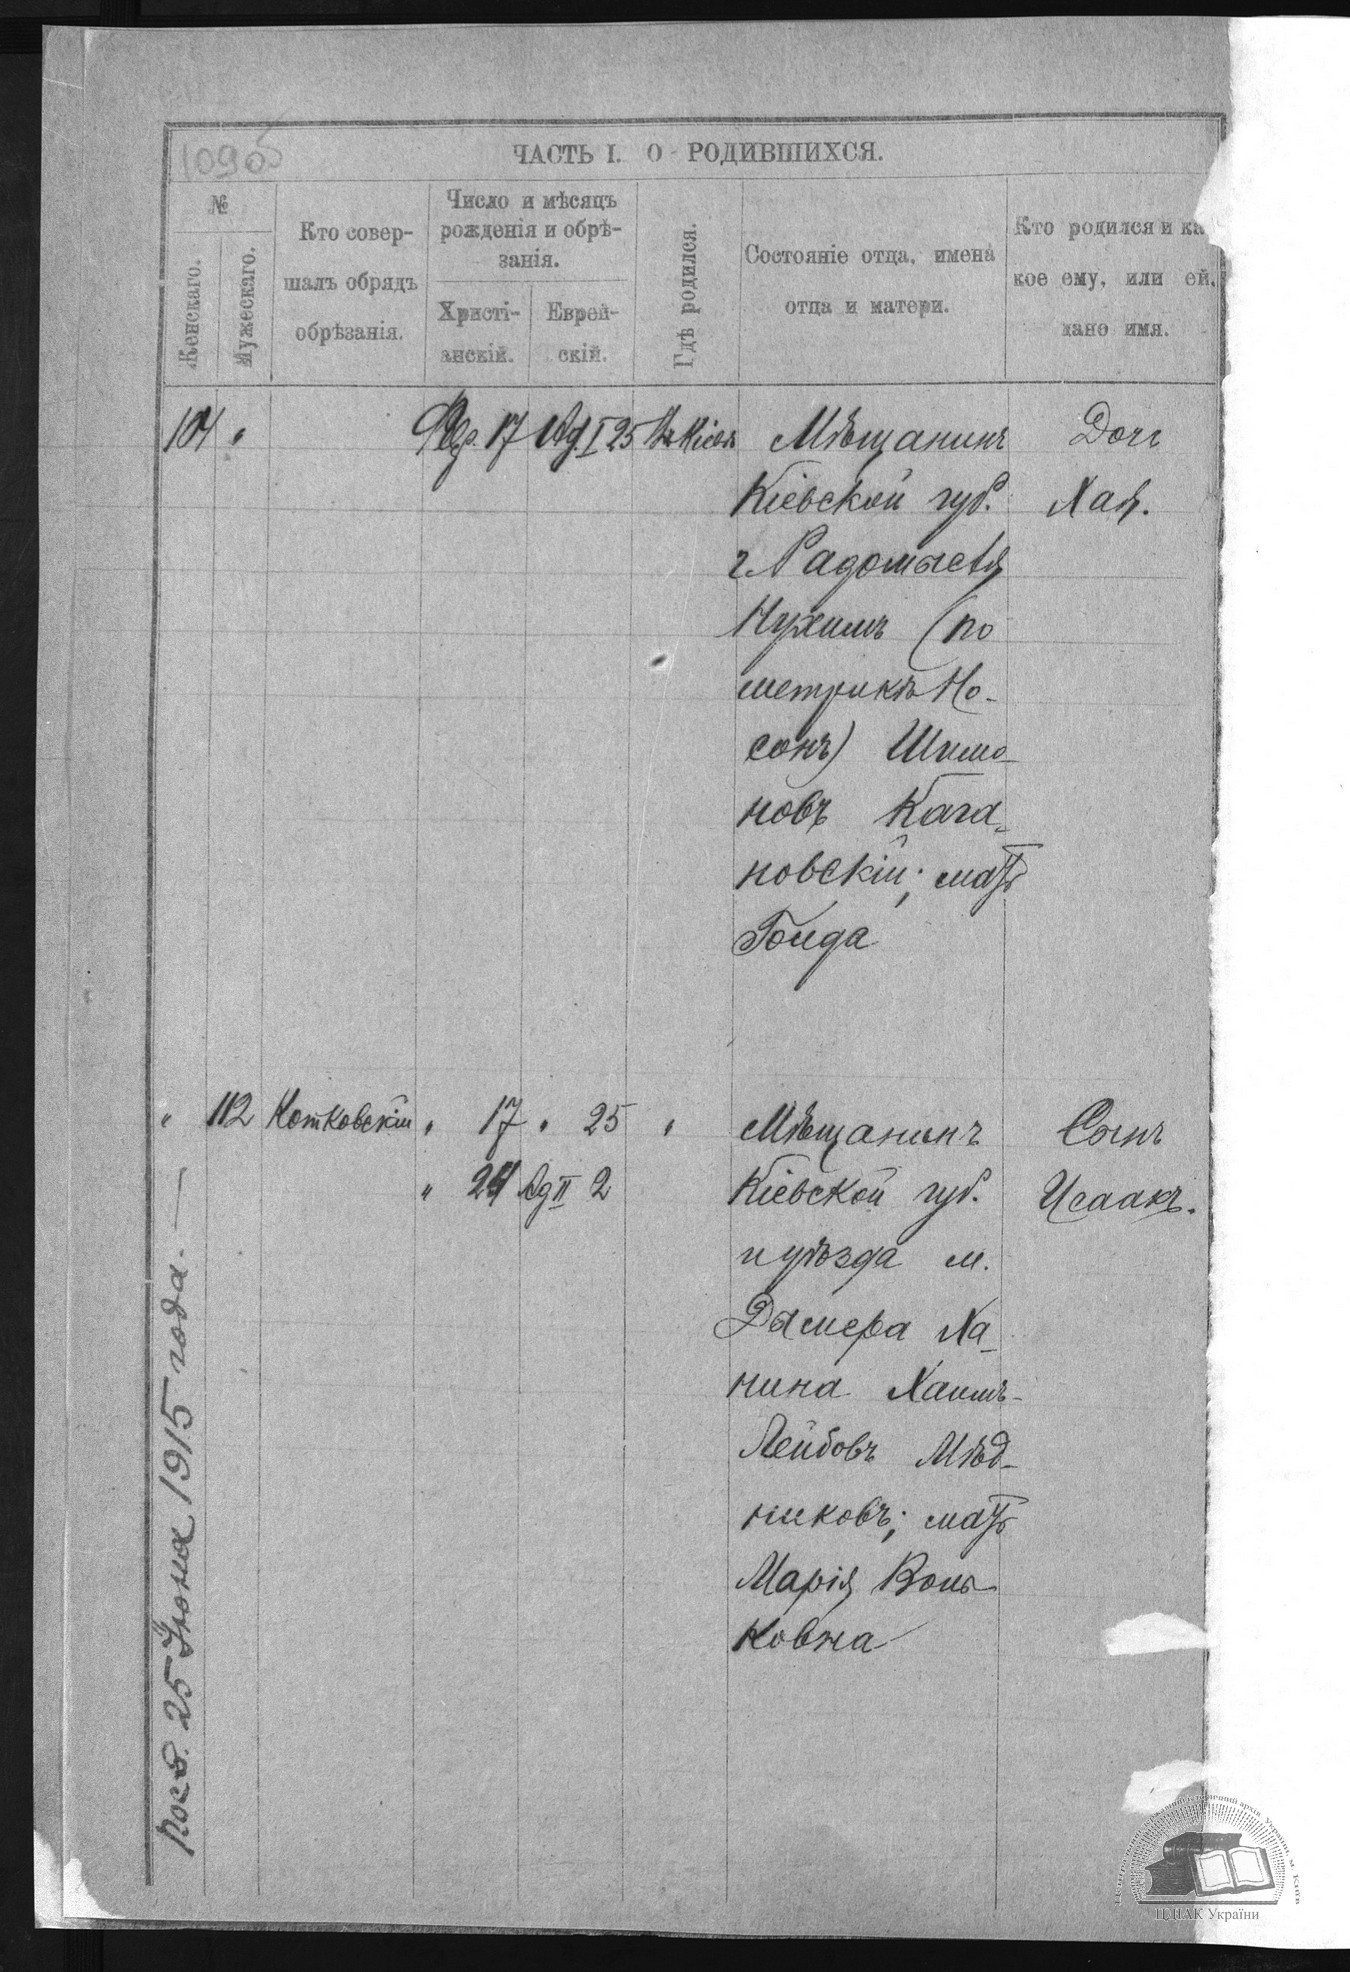 ЧАСТЬ I. О РОДИВШИХСЯ.
№
Женскаго.
Мужескаго.
Кто совер-
шалъ обрядъ
обрѣзанія.
Число и мѣсяцъ
рожденія и обрѣ-
занія.
Христі-
анскій.
Еврей-
скій.
Гдѣ родился.
Состояніе отца, имена
отца и матери.
Кто родился и ка
кое ему, или ей,
дано имя.
104 " Февр. 17 Ад. I 25 Въ Кіевѣ Мѣщанинъ Дочь
Кіевской губ. Хая.
г. Радомысля
Нухимъ (по
метрикѣ Но-
сонъ) Шимо-
новъ Кага-
новскій; мать
Голда
" 112 Котковскій " 17 " 25 " Мѣщанинъ Сынъ
" 24 Ад II 2 Кіевской губ. Исаакъ.
и уѣзда м.
Дымера Ха-
нина Хаимъ-
Лейбовъ Мѣд-
никовъ; мать
Марія Воль-
ковна
25 Іюня 1915 года.
ЦДІАК України